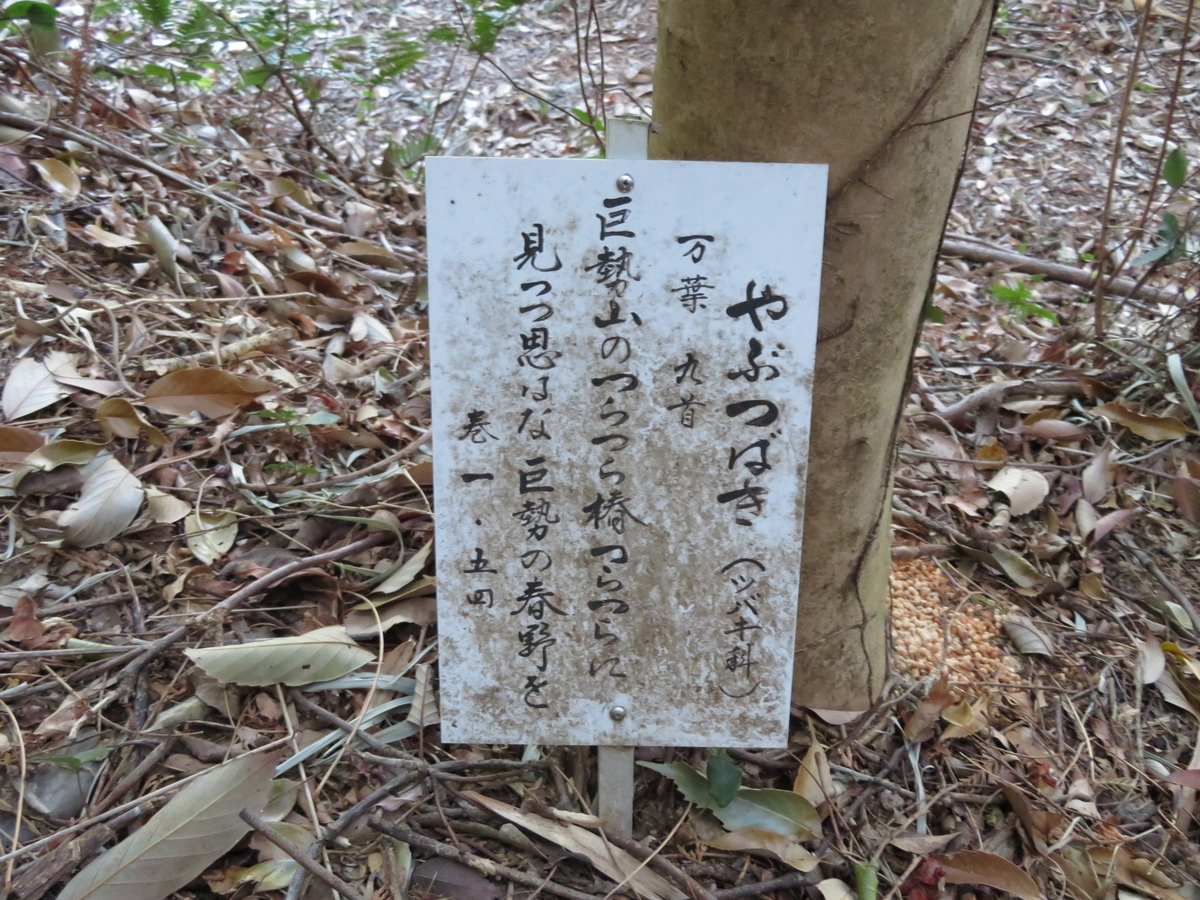 やぶつばき(ツバキ科)
万葉 九首
巨勢山のつらつら椿つらつらに
見つつ思はな巨勢の春野を
巻一・五四